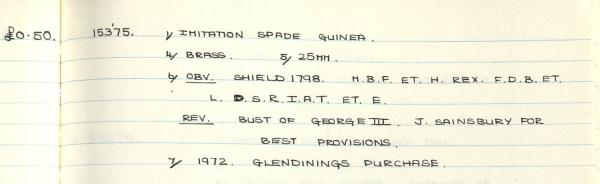 £0.50. 153'75. 1/ IMITATION SPADE GUINEA.
4/ BRASS. 5/ 25MM.
6/ OBV. SHIELD 1798. M.B.F. ET. H. REX. F.D.B. ET.
L. D.S.R.I.A.T. ET. E.
REV. BUST OF GEORGE III. J. SAINSBURY FOR
BEST PROVISIONS.
7/ 1972. GLENDININGS PURCHASE.